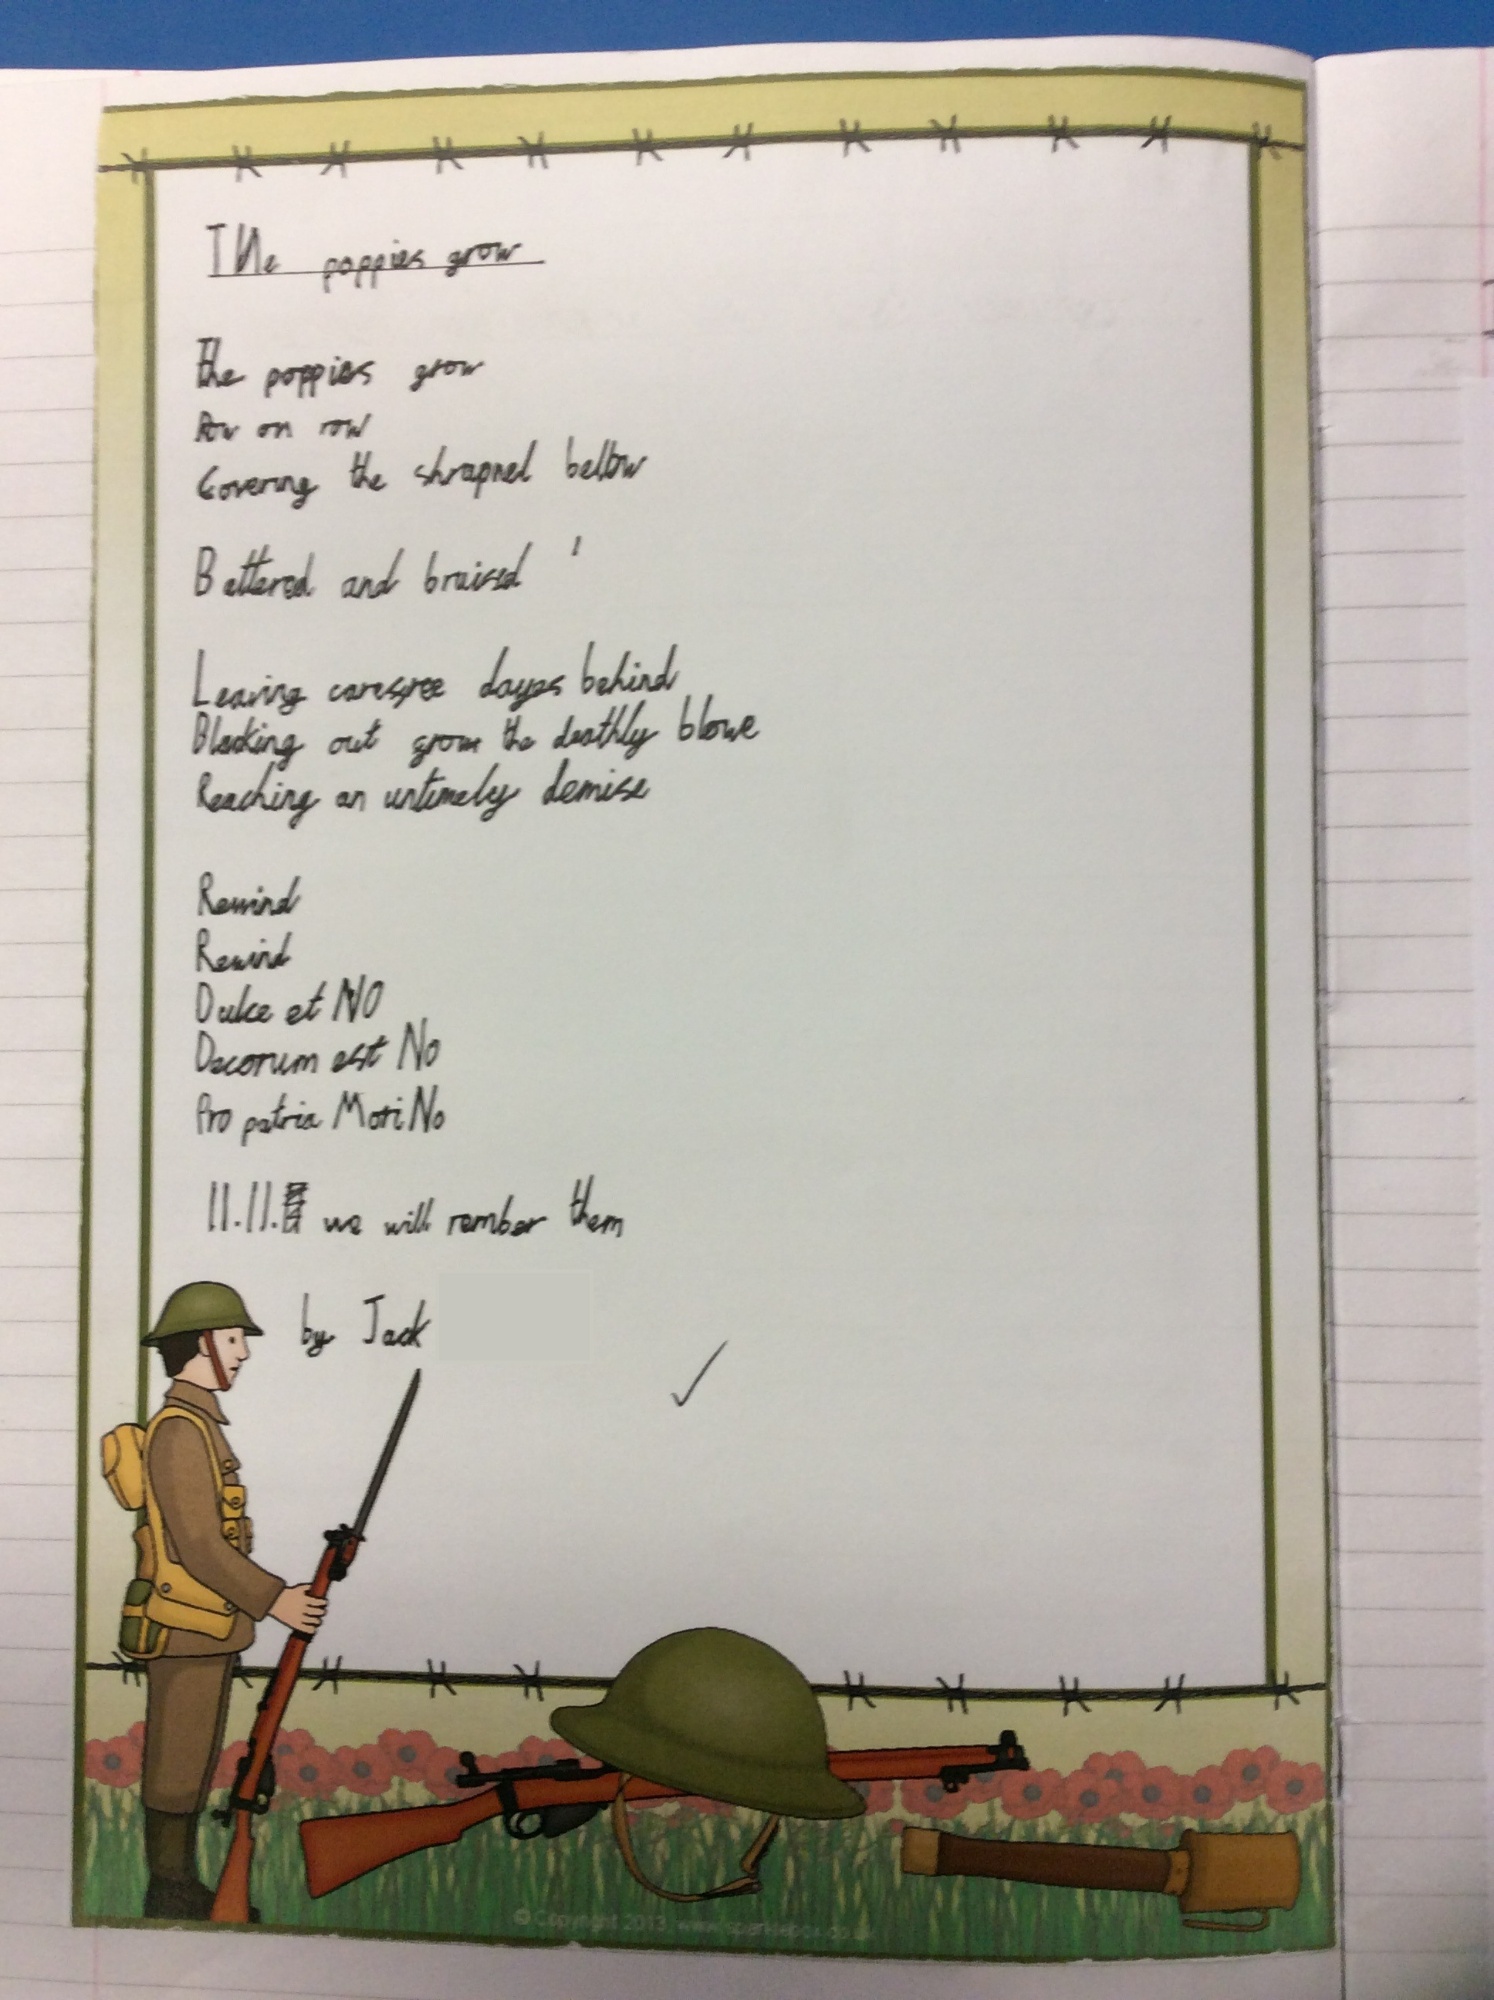 THe poppies grow
The poppies grow
Row on row
Covering the shrapnel bellow
Battered and bruised
Leaving carefree dayes behind
Blocking out grom the deathly blowe
Reaching an untimely demise
Rewind
Rewind
Dulce et NO
Decorum est No
Pro patria Mori No
11.11. we will rember them
by Jack
© Copyright 2013, www.sparklebox.co.uk